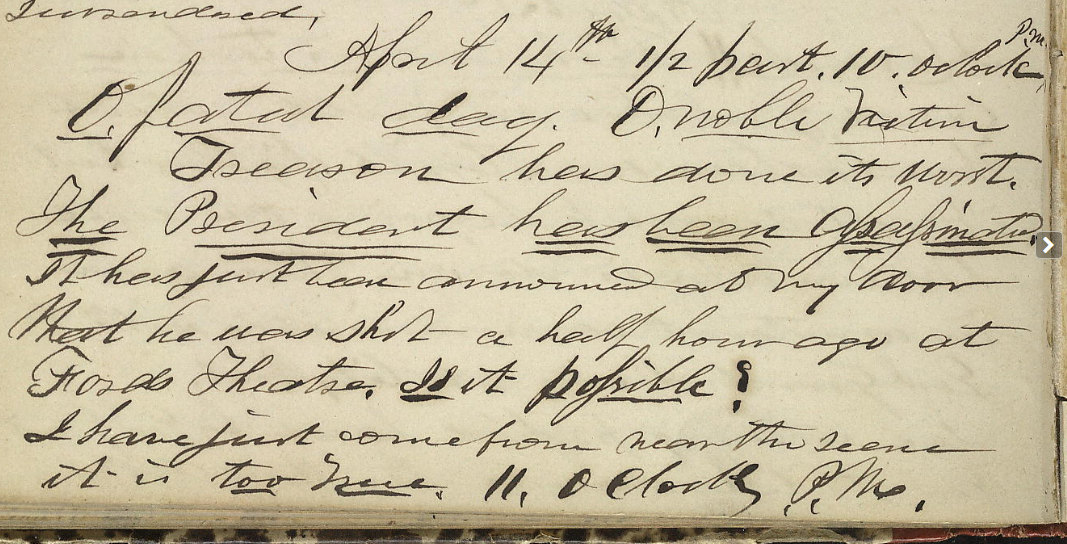 Surrendered,
April 14th 1/2 past. 10. oclock P.M.
O, fatal day. O, noble Victim
Treason has done its worst.
The President has been Assassinated.
It has just been announced at my door
that he was shot a half hour ago at
Fords Theatre. Is it possible?
I have just come from near the scene
it is too True. 11. O Clock, P.M.